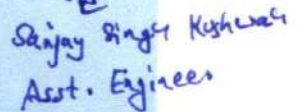 Sanjay Singh Kushwah
Asst. Engineer